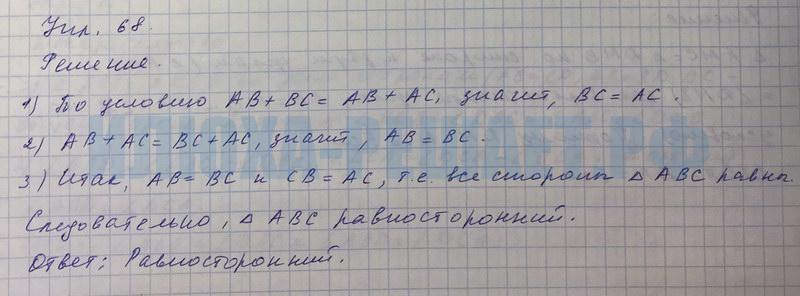 Упл. 68.
Решение.
1) По условию AB + BC = AB + AC, значит, BC = AC.
2) AB + AC = BC + AC, значит, AB = BC.
3.) Итак, AB = BC и CB = AC, т.е. все стороны △ ABC равны.
Следовательно, △ ABC равносторонний.
Ответ: Равносторонний.